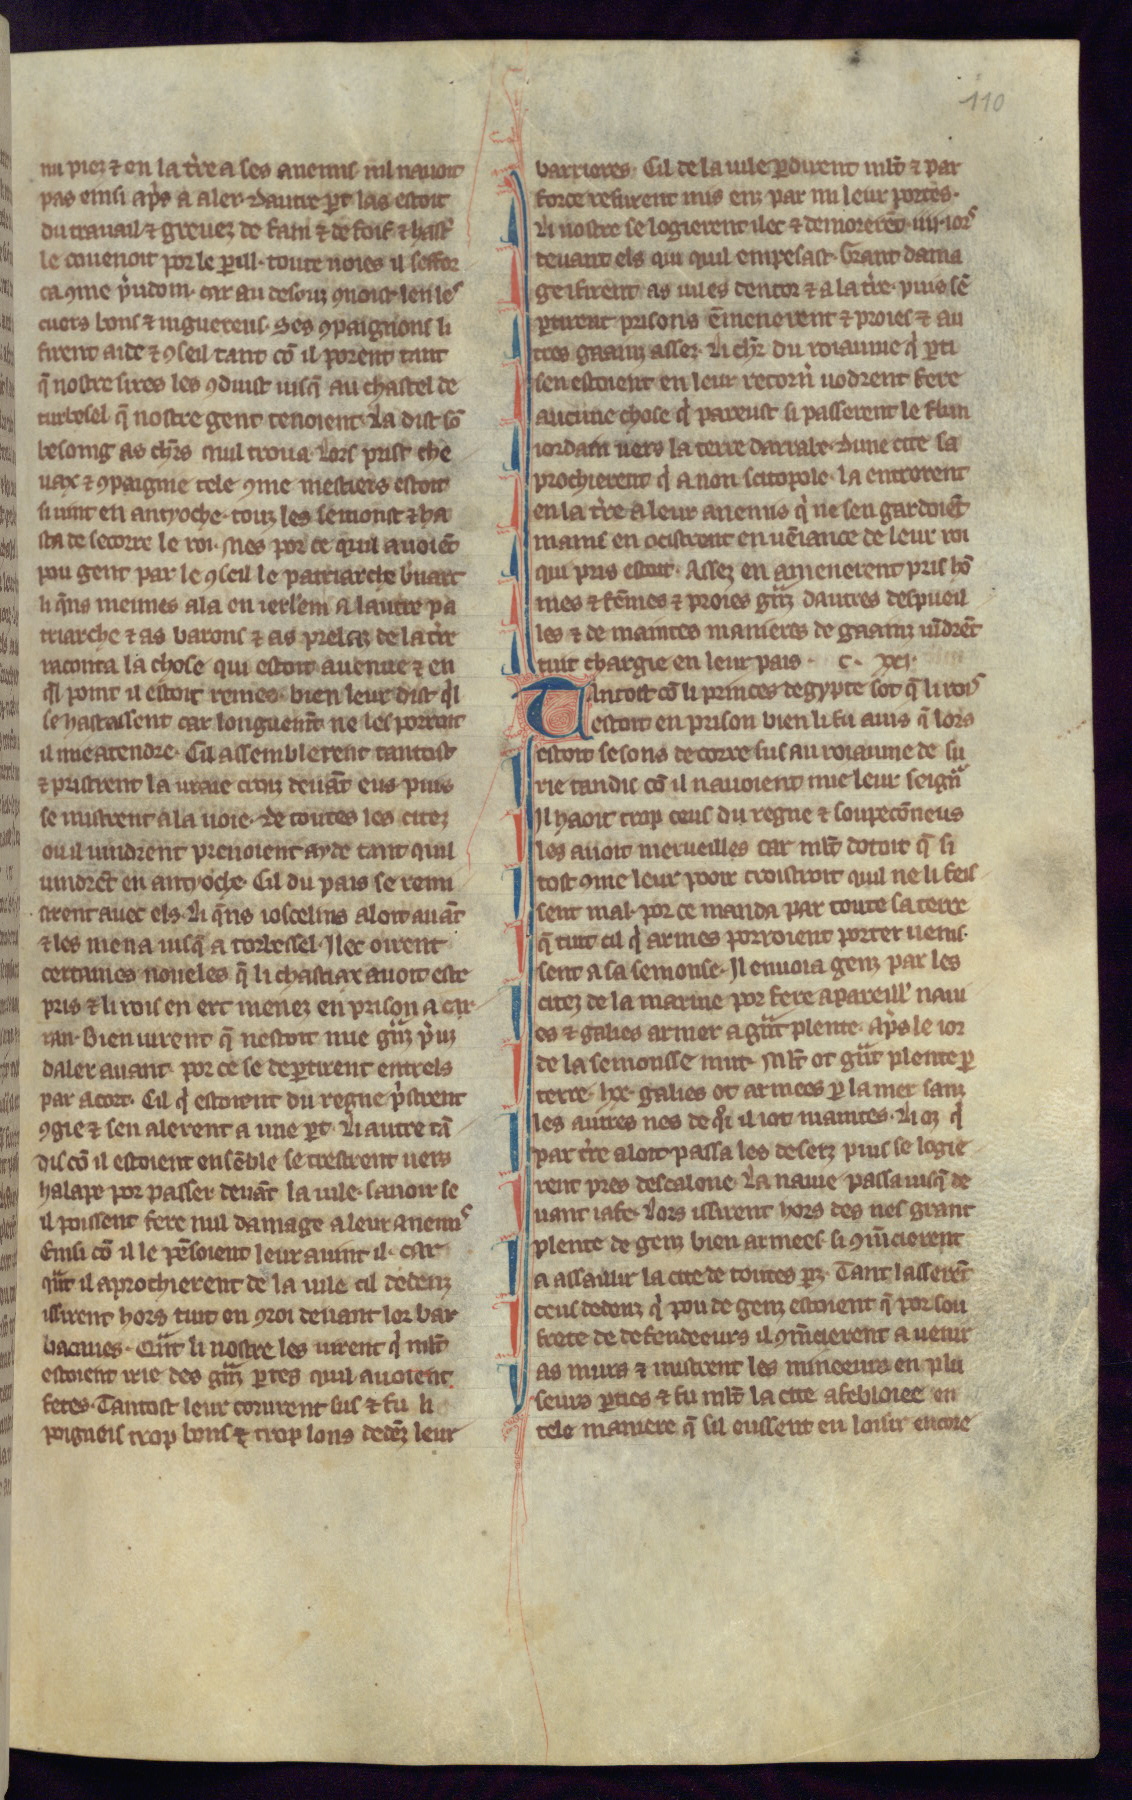 110
nu piez ⁊ en la t̾re a ses anemis nil nauoit
pas einsi ap̾s a aler. Dautre p̱t las estoit
du trauail ⁊ greuez de fain ⁊ de soif ⁊ hast̾
le couenoit por le p̱ill. toute uoies il seffor
ca ꝯme p̾udom. car au desouz ꝯnoist len les
cuers bons ⁊ uiguereus. Ses ꝯpaignons li
firent aide ⁊ ꝯseil tant cō il porent tant
q̄ nostre sires les ꝯduist iusq̄ au chastel de
turbesel q̄ nostre gent tenoient. La dist sō
besoing as ch̾rs quil troua. Lors prist che
uax ⁊ ꝯpaignie tele ꝯme mestiers estoit
si uint en antyoche. touz les semonst ⁊ ha
sta de secorre le roi. Mes por ce quil auoiēt
pou gent par le ꝯseil le patriarche b̾nart
li q̄ns meimes ala en ierl̄em a lautre pa
triarche ⁊ as barons ⁊ as prelaz de la t̾re
raconta la chose qui estoit auenue ⁊ en
q̄l point il estoit remes. bien leur dist q̄l
se hastassent car longuem̄t ne les porroit
il mie atendre. Cil assemblerent tantost
⁊ pristrent la uraie croiz deuāt eus puis
se mistrent a la uoie. de toutes les citez
ou il uindrent prenoient ayde tant quil
uindrēt en antyoche. Cil du pais se remi
strent auec els. Li q̄ns ioscelins aloit auāt
⁊ les mena iusq̄ a torbessel. Ilec oirent
certaines noueles q̄ li chastiax auoit este
pris ⁊ li rois en ert menez en prison a car
ran. Bien uirent q̄ nestoit mie g̾nz p̾uz
daler auant. por ce se dep̱tirent entrels
par acort. Cil q̾ estoient du regne p̾strent
ꝯgie ⁊ sen alerent a une p̱t. Li autre tā
dis cō il estoient ensēble se trestrent uers
halape por passer deuāt la uile. sauoir se
il poissent fere nul damage a leur anemis
Einsi cō il le pēsoient leur auint il. car
q̾nt il aprochierent de la uile cil dedenz
issirent hors tuit en ꝯroi deuant lor bar
bacanes. Q̾nt li nostre les uirent q̾ ml̄t
estoient irie des g̾nz p̱tes quil auoient
fetes. Tantost leur corurent sus ⁊ fu li
poigneis trop bons ⁊ trop lons dedēz leur
barrieres. Cil de la uile p̱dirent ml̄t ⁊ par
force refurent mis enz par mi leur portes.
Li nostre se logierent ilec ⁊ demorerēt .iiii. iors
deuant els qui quil empesast. Grant dama
ge firent as uiles dentor ⁊ a la t̾re. puis sē
p̱tirent prisons ēmenerent ⁊ proies ⁊ au
tres gaainz assez. Li ch̾r du roiaume q̾ p̱ti
sen estoient en leur retorn̾ uodrent fere
aucune chose q̾ pareust si passerent le flun
iordain uers la terre darrabe. Dune cite sa
prochierent q̾ a non scitopole. la entrerent
en la t̾re a leur anemis q̾ ne sen gardoiēt
mains en ocistrent en uēiance de leur roi
qui pris estoit. Assez en amenerent pris hō
mes ⁊ fēmes ⁊ proies g̾nz dautres despueil
les ⁊ de maintes manieres de gaainz uīdrēt
tuit chargie en leur pais. c. xxi.
Tantost cō li princes degypte sot q̄ li rois
estoit en prison bien li fu auis q̄ lors
estoit sesons de corre sus au roiaume de su
rie tandis cō il nauoient mie leur seign̾
Il haoit trop ceus du regne ⁊ soupecōneus
les auoit merueilles car ml̄t dotoit q̄ si
tost ꝯme leur pooir croistroit quil ne li feis
sent mal. por ce manda par toute sa terre
q̄ tuit cil q̾ armes porroient porter uenis
sent a sa semonse. Il enuoia genz par les
citez de la marine por fere apareill̾ naui
es ⁊ galies armer a g̾nt plente. Ap̾s le ior
de la semonsse mut. Ml̄t ot g̾nt plente p̱
terre. lxx. galies ot armees p̱ la mer sanz
les autres nes de q̾i il iot maintes. Li oz q̾
par t̾re aloit passa les deserz puis se logie
rent pres descalone. La nauie passa iusq̄ de
uant iafe. Lors issirent hors des nes grant
plente de genz bien armees. si ꝯm̄cierent
a assaillir la cite de toutes p̱z. Tant lasserēt
ceus dedenz q̾ pou de genz estoient q̄ por sou
frete de defendeeurs il ꝯm̄cierent a uenir
as murs ⁊ mistrent les mineeurs en plu
seurs p̱ties ⁊ fu ml̄t la cite afebloiee en
tele maniere q̄ sil eussent eu loisir encore